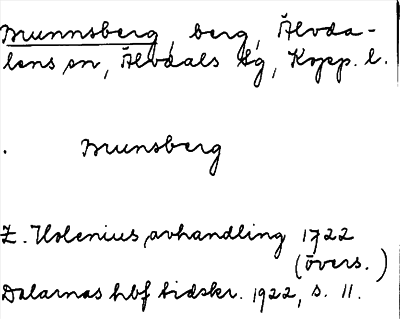 Brunnsberg, berg, Älvda-
lens sn, Älvdals Hg, Kopp. l.
Brunsberg
E. Holenius, avhandling 1722
(övers.)
Dalarnas hbf tidskr. 1922, s. 11.